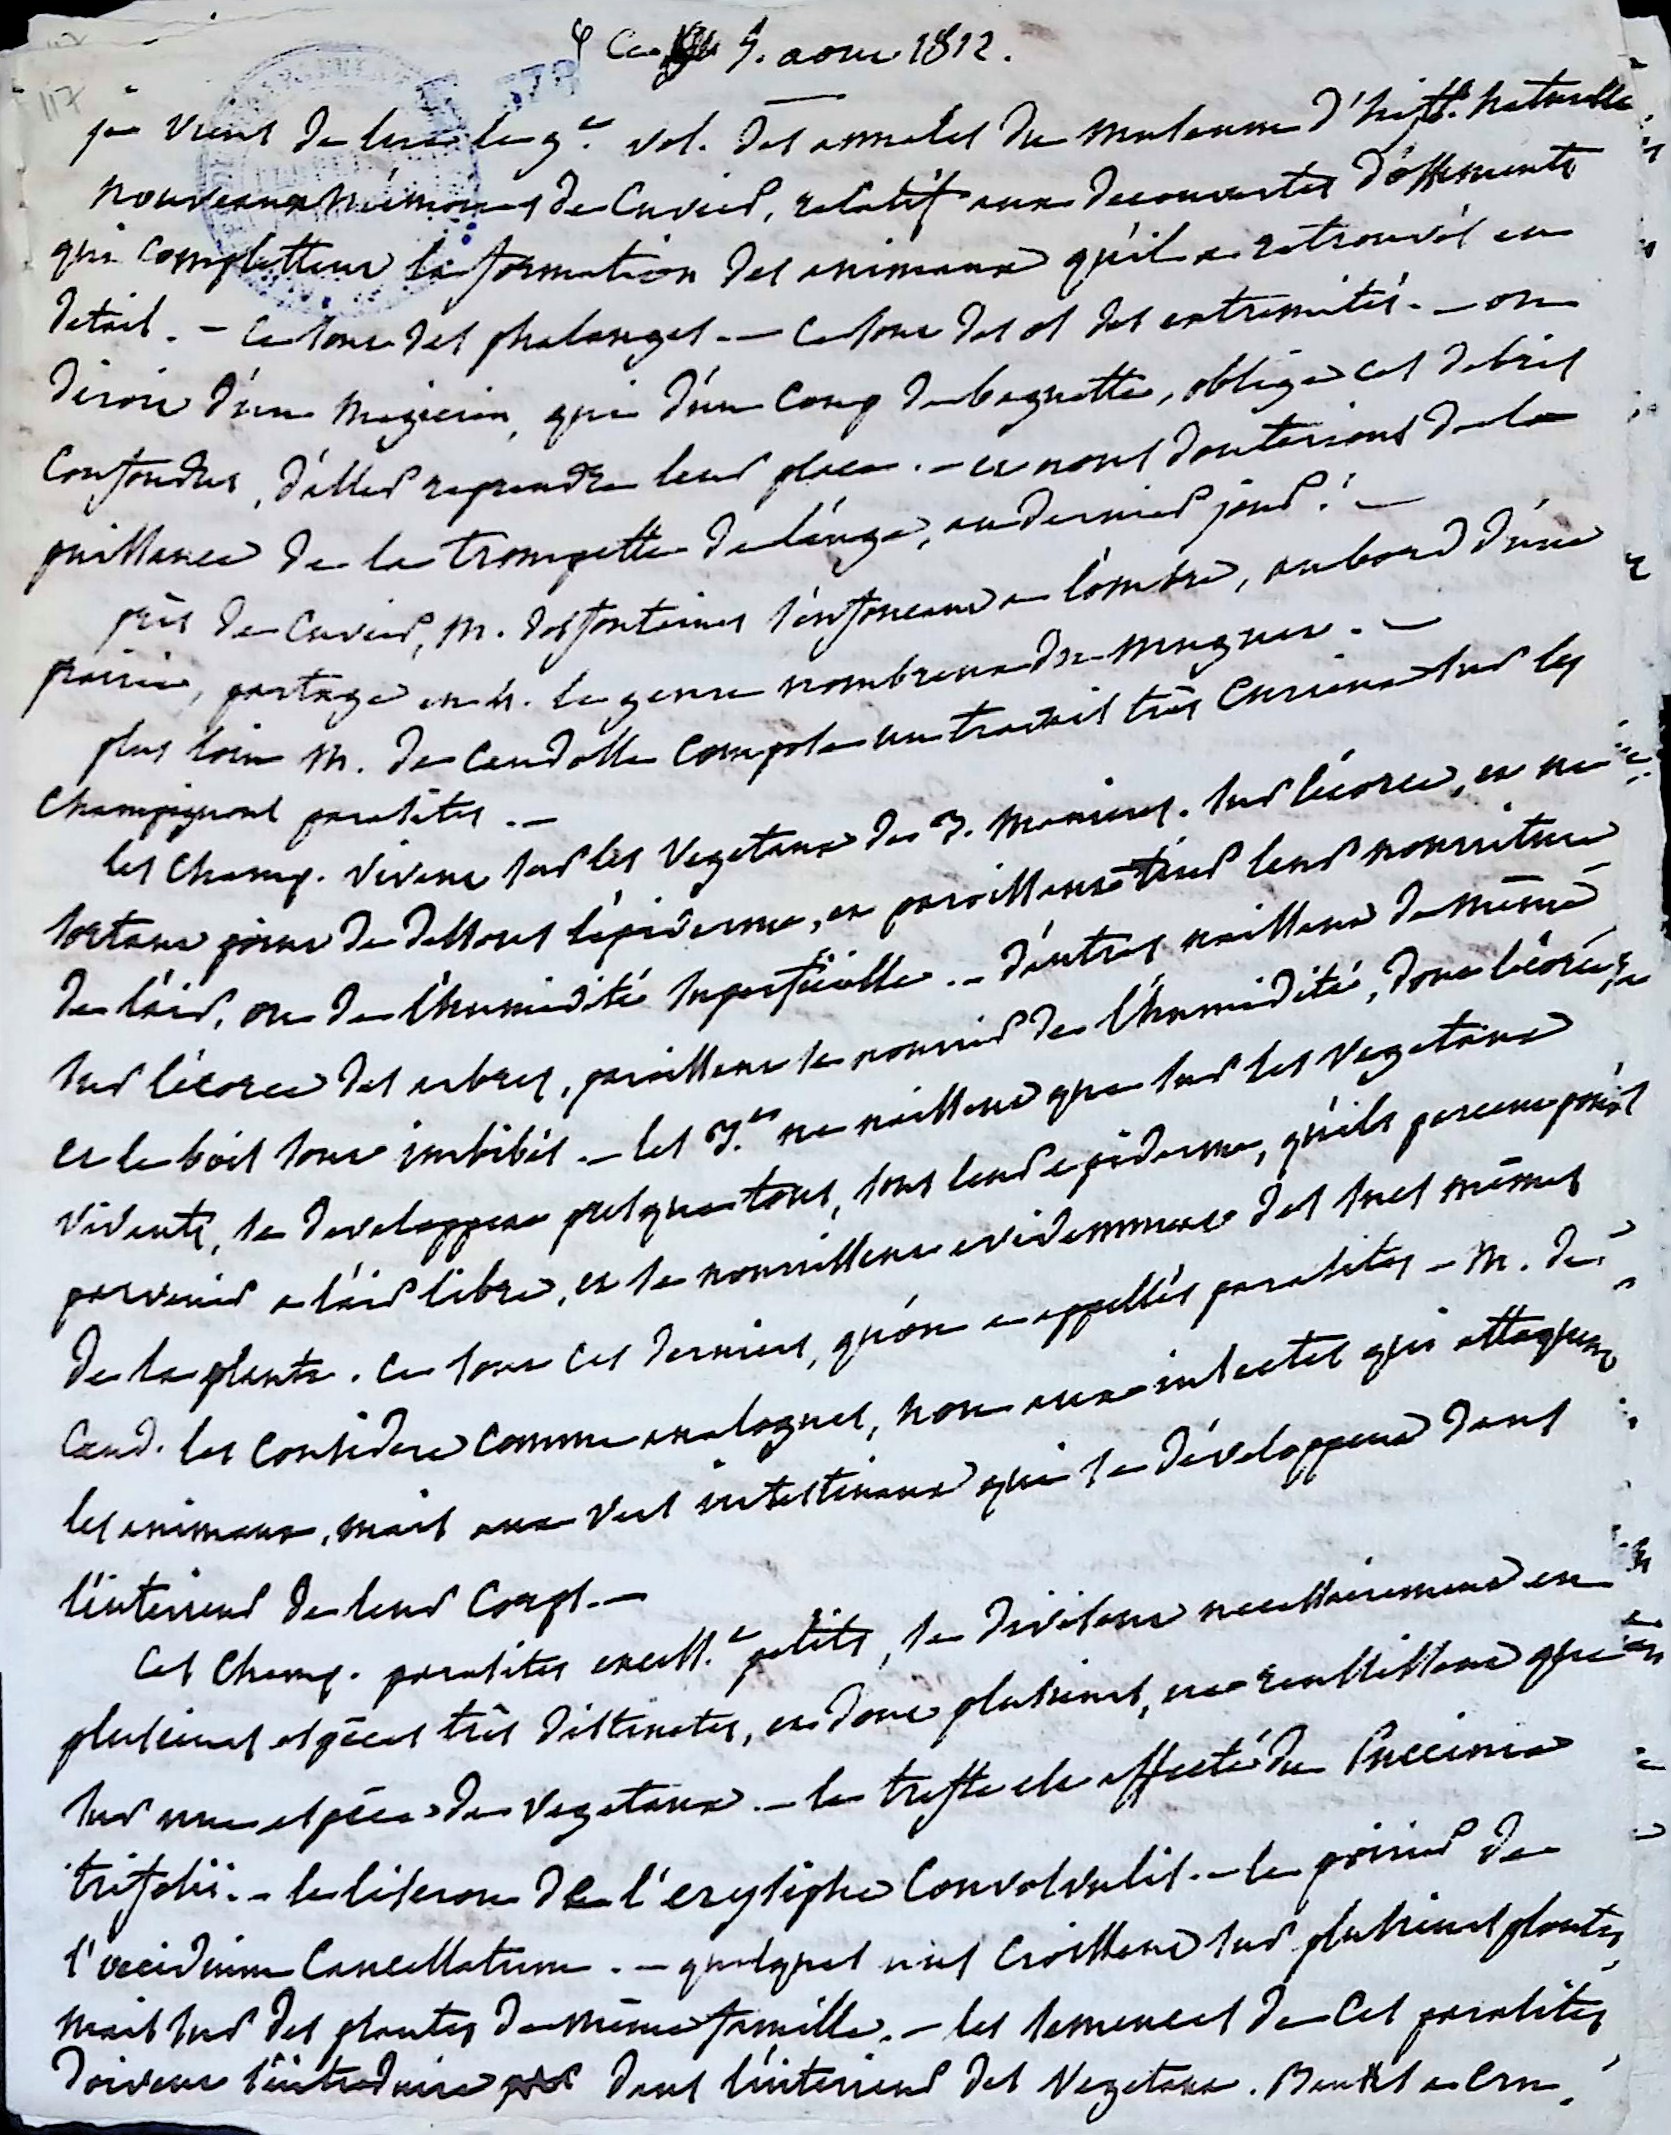 117
378
Ce 5. aout 1812.
je viens de lire le 9.e vol. des annales du museum d'hist.re naturelle
nouveaux mémoires de Cuvier, relatif aux decouvertes d'ossements
qui complettent la formation des animaux qu'il a retrouvés en
detail. - ce sont des phalanges. - ce sont des os des extremités. - on
diroit d'un magicien, qui d'un coup de baguette, oblige ces debris
confondus, d'aller reprendre leur place. - et nous douterions de la
puissance de la trompette de l'ange, au dernier jour! -
près de Cuvier, M. desfontaines s'enfoncant a l'ombre, au bord d'une
prairie, partage en 4. le genre nombreux du muguet. -
plus loin M. de Candolle compose un travail très curieux sur les
champignons parasites. -
les champ. vivent sur les vegetaux de 3. manieres. sur l'écorce, et ne
sortant point de dessous l'épiderme, et paroissant tirer leur nourriture
de l'air, ou de l'humidité superficielle. - d'autres naissant de même
sur l'écorce des arbres, paroissent se nourrir de l'humidité, dont l'écorce
et le bois sont imbibés. - les 3.es ne naissent que sur les vegetaux
vivants, se developpent presque tous, sous leur epiderme, qu'ils percent pour
parvenir a l'air libre, et se nourrissent evidemment des sucs mêmes
de la plante. ce sont ces derniers, qu'on a appellés parasites - M. de
Cand. les considere comme analogues, non aux insectes qui attaquent
les animaux, mais aux vers intestinaux qui se développent dans
l'interieur de leur corps. -
Ces champ. parasites excess.t petits, se divisent necessairement en
plusieurs espèces très distinctes, et dont plusieurs, ne reussissent que
sur une espèce de vegetaux. - le treffle est affecté du Puccinia
trifolii. - le liseron de l'erysiphe Convolvulis. - le poirier de
l'oecidium Cancellatum. - quelques uns croissent sur plusieurs plantes,
mais sur des plantes de même famille. - les semences de ces parasites,
doivent s'introduire dans l'interieur des vegetaux. Banks a cru